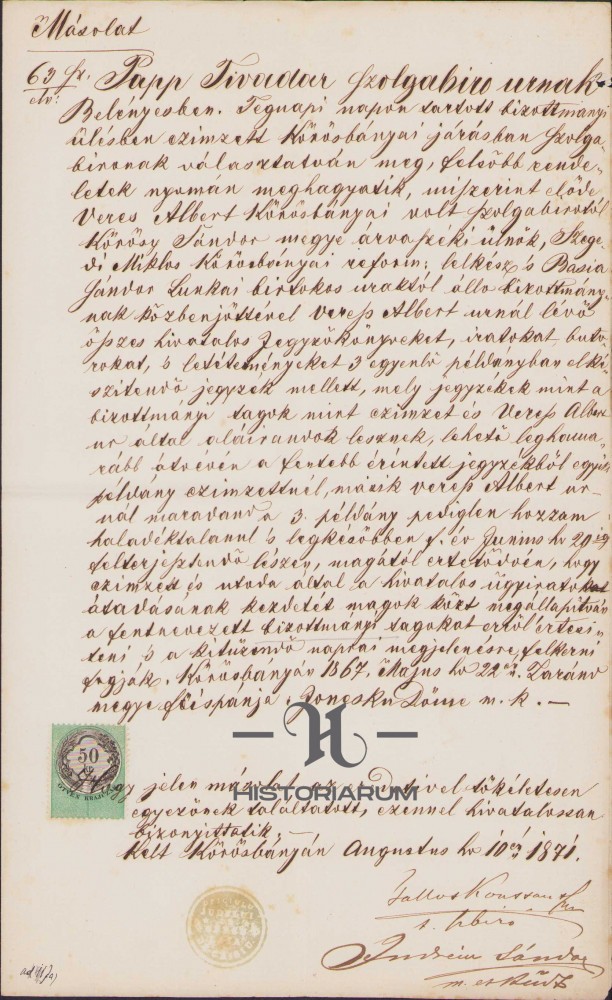 Másolat
63 sz.
eln:
Papp Tivadar szolgabiro urnak
Belényesben. Tegnapi napon tartott bizottmányi
ülésben czimzett Körösbányai járásban szolga-
bironak választatván meg, felsöbb rende-
letek nyomán meghagyatik, miszerint elöde
Veres Albert Körösbányai volt szolgabirotól
Körösy Sándor megye árvaszéki ülnök, Szege-
di Miklos Körösbányai reform: lelkész s Basia
Sándor Lunkai birtokos uraktól állo bizottmány-
nak közbenjöttével Veress Albert urnál lévö
összes hivatalos Jegyzökönyveket, iratokat, buto-
rokat, s letéteményeket 3 egyenlö példányban elké-
szitendö jegyzék mellett, mely jegyzékek mint a
bizottmányi tagok mint czimzet és Veress Albert
ur által aláirandok lesznek, lehetö leghama-
rább átvévén a fentebb érintett jegyzékböl egyik
példány czimzettnél, másik Veress Albert ur-
nál maradand a 3. példány pediglen hozzám
haladéktalanul s legkésöbben f. év Junius hó 20ig
felterjesztendö lészen, magától értetödvén, hogy
czimzett és utoda által a hivatalos ügyiratok
átadásának kezdetét magok közt megállapitván
a fentnevezett bizottmányi tagokat erröl értesi-
teni s a kitüzendö naprai megjelenésre felkerni
fogják. Körösbányán 1867. Majus hó 22én. Zaránd
megye föispánja Joneskú Döme m. k. —
50
ÖTVEN KRAJCZÁR
Hogy jelen másolat az eredetivel tökéletesen
egyezönek találtatott, ezennel hivatalossan
bizonyittatik.
Kelt Körösbányán Augustus hó 10én 1871.
H
HISTORIARUM
Sándor
m. esküdt